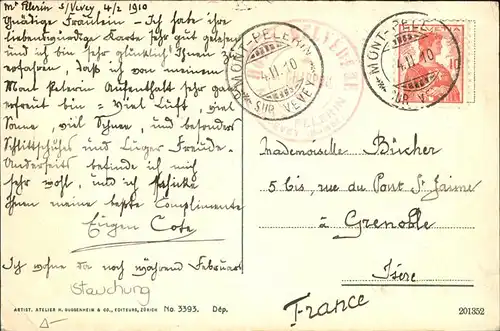 Mt Pélerin s/Vevey 4/2 1910
Gnädige Fräulein – Ich habe ihre
liebenswürdige Karte sehr gut gelesen
und ich bin sehr glücklich Ihnen zu
erfahren, dass ich von meinem
Mont Pelerin Aufenthalt sehr
erfreut bin = Viel Luft, viel
Sonne, viel Schnee, und besonders
Schlittschuhes und Luger Freude –
Anderseits befinde ich mich
sehr wohl, und ich schicke
Ihnen meine beste Complimente
Eugen Cote
Ich wohne da noch während Februar
Stauchung
ARTIST. ATELIER H. GUGGENHEIM & CO., EDITEURS, ZÜRICH No. 3393. Dép.
MONT-PELERIN
4.II.10
SUR VEVEY
PELERIN
HELVETIA
10
MONT-PELERIN
4.II.10
SUR VEVEY
Mademoiselle Bücher
5 bis, rue du Pont St Jaime
à Grenoble
Isère
France
201352